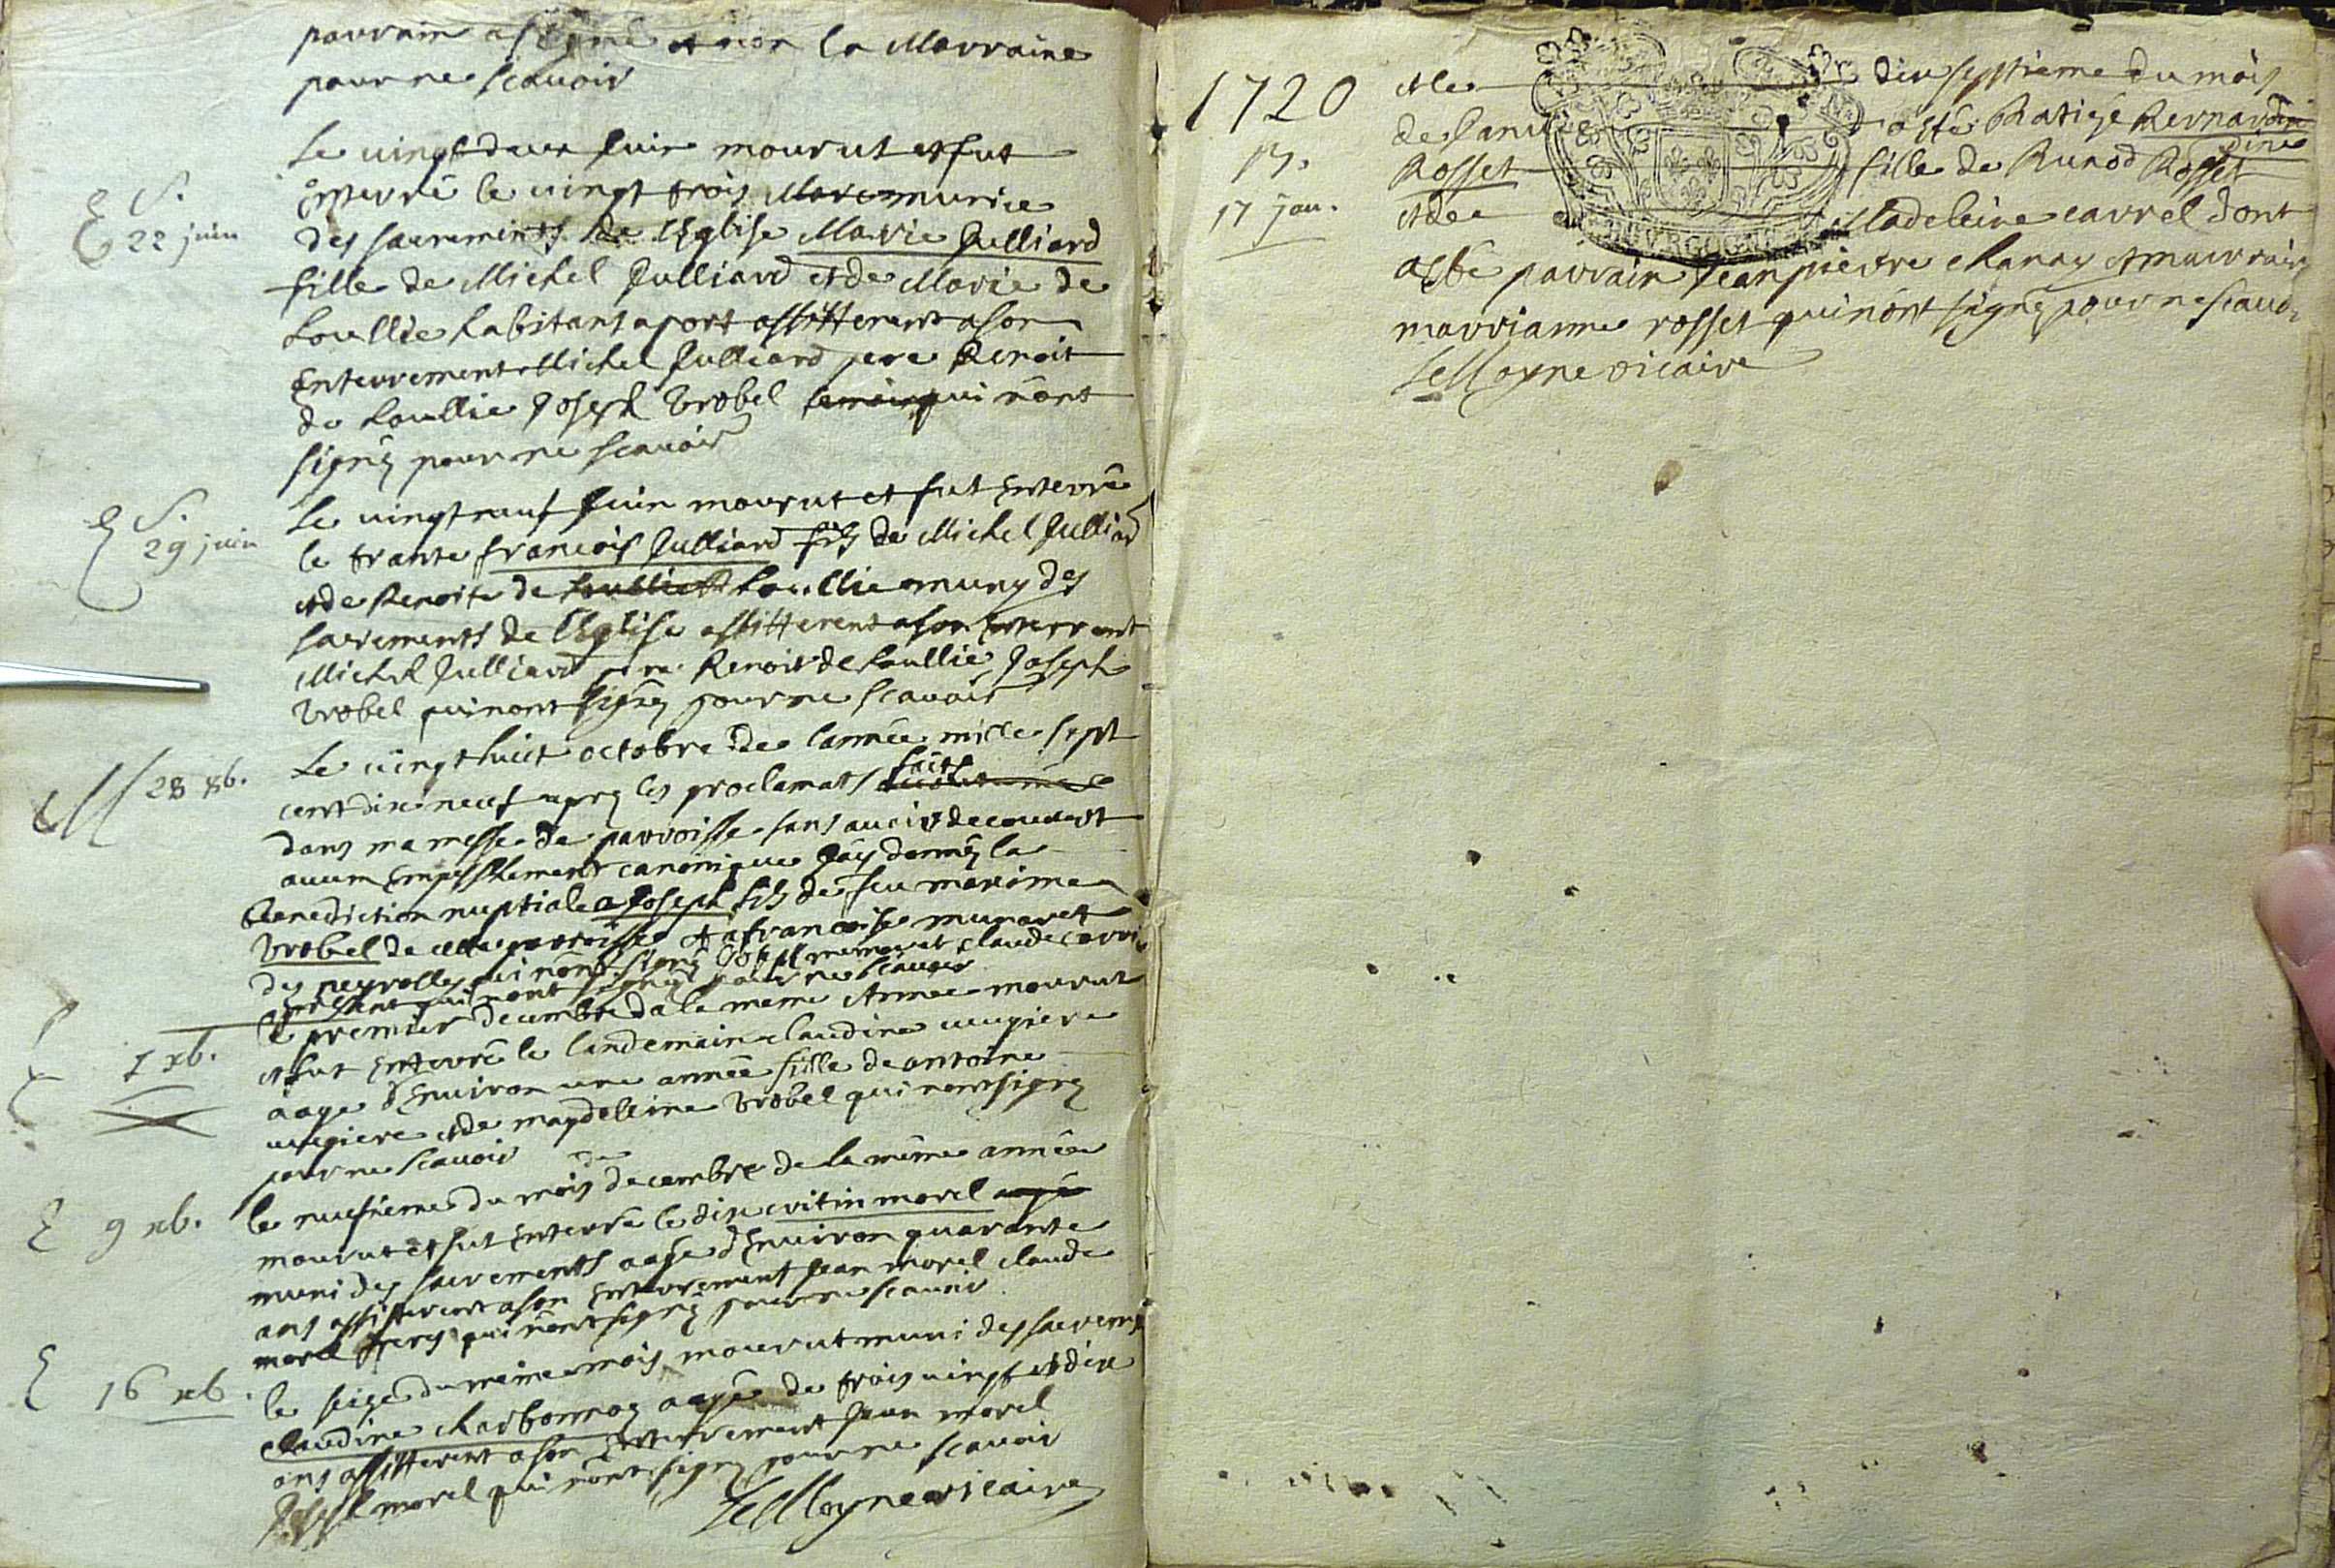 parrain a signé et non la Marraine
pour ne scauoir
S.
22 juin
Le uingt deux Juin mourut et fut
Enterré le uingt trois munie
des sacrements de l'Eglise Marie Julliard
fille de Michel Julliard et de Marie de
Loullie habitans a port assitterent a son
Enterrement Michel Julliard pere Benoit
de Loullie Joseph Vrobel qui n'ont
signez pour ne scauoir
S.
29 juin
Le uingt neuf Juin mourut et fut Enterré
le trante francois Julliard filz de Michel Julliard
et de Benoite de Loullie muny des
sacrements de l'Eglise assitterent a son
Michel Julliard pere Benoit de Loullie Joseph
Vrobel qui nont signez pour ne scauoir
M 28 8b.
Le uingt huict octobre de l'année mille sept
cent dix neuf aprez les proclamats faits
dans ma messe de parroisse sans auoir decouuert
aucun Empeschement canonique J'ay donnéz la
Benediction nuptiale a Joseph filz de feu maxime
Vrobel de cette parroisse et a francoise munaret
des peyrolles qui n'ont signé claude
present qui n'ont signez pour ne scauoir
1 xb.
le premier decembre de la meme Année mourut
et fut Enterré le landemain claudine uugiere
aage d'Enuiron une année fille de antoine
uugiere et de magdelleine Vrobel qui n'ont signez
pour ne scauoir
9 xb.
le neufieme du mois de decembre de la même année
mourut et fut Enterré le dix critin morel
muni des sacrements aage d'Enuiron quarante
ans assisterent a son Enterrement Jean morel claude
morel freres qui n'ont signez pour ne scauoir
16 xb.
le seize du meme mois mourut muni des sacrem
claudine charbonnoz aagée de trois uingt et dix
ans assitterent a son Enterrement Jean morel
Joseph morel qui n'ont signez pour ne scauoir
LeMoyne vicaire
1720
et le dix septieme du mois
B.
17 jan.
de Januier a esté Batizé Bernardine
Rosset fille de Rosset
et de Madeleine carrel dont
a esté parrain Jean pierre chanay et marraine
marrianne rosset qui n'ont signez pour ne scauoi
LeMoyne vicaire